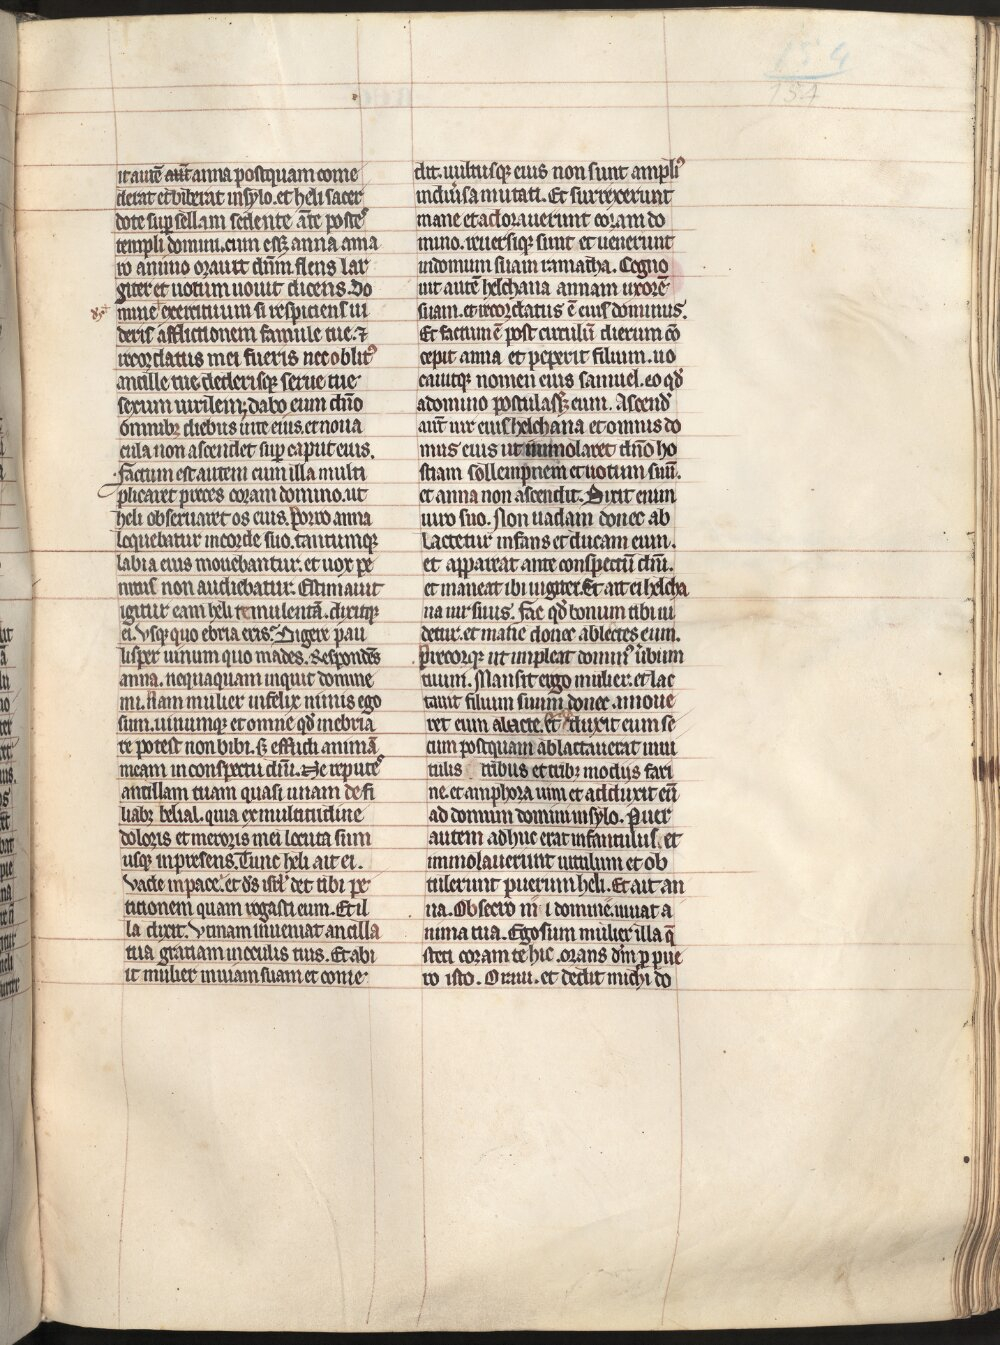 154
134
it autē aūt anna postquam come
derat et biberat insylo. et heli sacer
dote suꝑ sellam sedente āte postes
templi domini. cum essꝫ anna ama
ro animo orauit dn̄m flens lar
giter et uotum uouit dicens. Do
mine exercituum si respiciens ui
deris afflictionem famule tue. ⁊
recordatus mei fueris nec oblitꝰ
ancille tue dederisqꝫ serue tue
sexum uirilem; dabo eum dn̄o
omnibꝫ diebus uite eius. et noua
cula non ascendet suꝑ caput eius.
factum est autem cum illa multi
plicaret preces coram domino. ut
heli obseruaret os eius. Porro anna
loquebatur incorde suo. tantumqꝫ
labia eius mouebantur. et uox pe
nitus non audiebatur. Estimauit
igitur eam heli temulentā. dixitqꝫ
ei. Vsqꝫ quo ebria eris? Digere pau
lisper uinum quo mades. Respondēs
anna. nequaquam inquit domine
mi. Nam mulier infelix nimis ego
sum. uinumqꝫ et omne qd̄ inebria
re potest non bibi. sꝫ effudi animā
meam in conspectu dn̄i. Ne reputes
ancillam tuam quasi unam de fi
liabꝫ belial. quia ex multitudine
doloris et meroris mei locuta sum
usqꝫ inpresens. Tunc heli ait ei.
Vade in pace. et ds̄ isrl̄ det tibi pe
titionem quam rogasti eum. Et il
la dixit. Vtinam inueniat ancilla
tua gratiam inoculis tuis. Et abi
it mulier inuiam suam et come
dit. uultusqꝫ eius non sunt ampliꝰ
indiuersa mutati. Et surrexerunt
mane et adorauerunt coram do
mino. reuersiqꝫ sunt et uenerunt
indomum suam ramatha. Cogno
uit autē helchana annam uxorē
suam. et recordatus ē eius dominus.
Et factum ē post circulū dierum cō
cepit anna et peperit filium. uo
cauitqꝫ nomen eius samuel. eo qd̄
adomino postulassꝫ eum. Ascend̄
aūt uir eius helchana et omnis do
mus eius ut immolaret dn̄o ho
stiam sollempnem et uotum suū.
et anna non ascendit. Dixit enim
uiro suo. Non uadam donec ab
lactetur infans et ducam eum.
et appareat ante conspectū dn̄i.
et maneat ibi iugiter. Et ait ei helcha
na uir suus. Fac qd̄ bonum tibi ui
detur. et mane donec ablectes eum.
Precorqꝫ ut impleat dominꝰ uerbum
tuum. Mansit ergo mulier. et lac
tauit filium suum donec ammoue
ret eum alacte. et duxit eum se
cum postquam ablactauerat inui
tulis tribus et tribꝫ modiis fari
ne. et amphora uini et adduxit eū
ad domum domini insylo. Puer
autem adhuc erat infantulus. et
immolauerunt uitulum et ob
tulerunt puerum heli. Et ait an
na. Obsecro mi domine. uiuat a
nima tua. Ego sum mulier illa q̄
steti coram te hic. orans dn̄m ꝑ pue
ro isto. Oraui. et dedit michi do